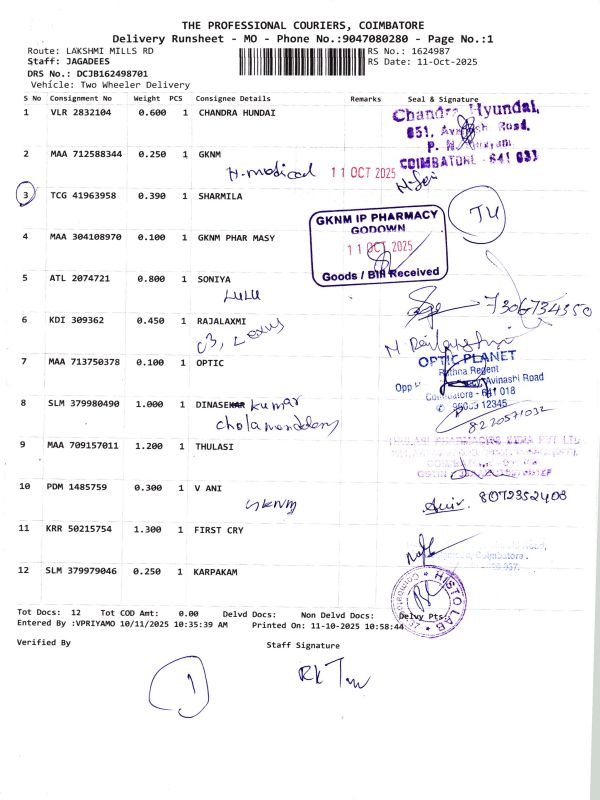 THE PROFESSIONAL COURIERS, COIMBATORE
Delivery Runsheet - MO - Phone No.:9047080280 - Page No.:1
Route: LAKSHMI MILLS RD RS No.: 1624987
Staff: JAGADEES RS Date: 11-Oct-2025
DRS No.: DCJB162498701
Vehicle: Two Wheeler Delivery
S No Consignment No Weight PCS Consignee Details Remarks Seal & Signature
1 VLR 2832104 0.600 1 CHANDRA HUNDAI
Chandra Hyundai,
851, Avinash Road,
COIMBATORE - 641 037
2 MAA 712588344 0.250 1 GKNM
N-medical 11 OCT 2025
3 TCG 41963958 0.390 1 SHARMILA
GKNM IP PHARMACY
GODOWN
11 OCT 2025
Goods / Bill Received
4 MAA 304108970 0.100 1 GKNM PHAR MASY
5 ATL 2074721 0.800 1 SONIYA
LULU
7306734350
6 KDI 309362 0.450 1 RAJALAXMI
C3, Lexus
7 MAA 713750378 0.100 1 OPTIC
OPTIC PLANET
Rathna Regent
Opp Avinashi Road
Coimbatore - 641 018
95005 12345
8 SLM 379980490 1.000 1 DINASEKAR kumar
cholamandalam
8220571032
9 MAA 709157011 1.200 1 THULASI
THULASI PHARMACIES INDIA PVT LTD
10 PDM 1485759 0.300 1 V ANI
8072352408
11 KRR 50215754 1.300 1 FIRST CRY
12 SLM 379979046 0.250 1 KARPAKAM
HISTO LAB
Coimbatore
Tot Docs: 12 Tot COD Amt: 0.00 Delvd Docs: Non Delvd Docs: Delvy Pts:
Entered By :VPRIYAMO 10/11/2025 10:35:39 AM Printed On: 11-10-2025 10:58:44
Verified By Staff Signature
1